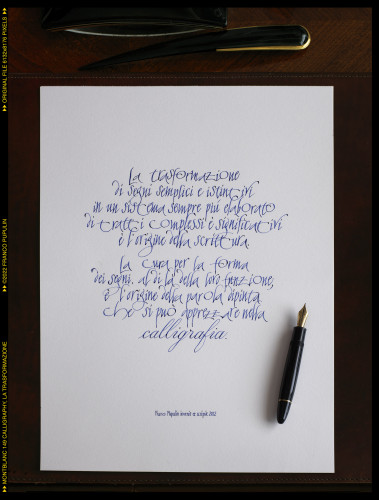 La trasformazione
di segni semplici e istintivi
in un sistema sempre più elaborato
di tratti complessi e significativi
è l'origine della scrittura.
La cura per la forma
dei segni, al di là della loro funzione,
è l'origine della parola dipinta
che si può apprezzare nella
calligrafia.
Franco Pupulin inventò et scripsit 2022
ORIGINAL FILE 6132x8176 PIXELS
©2022 FRANCO PUPULIN
MONTBLANC 149 CALLIGRAPHY, LA TRASFORMAZIONE